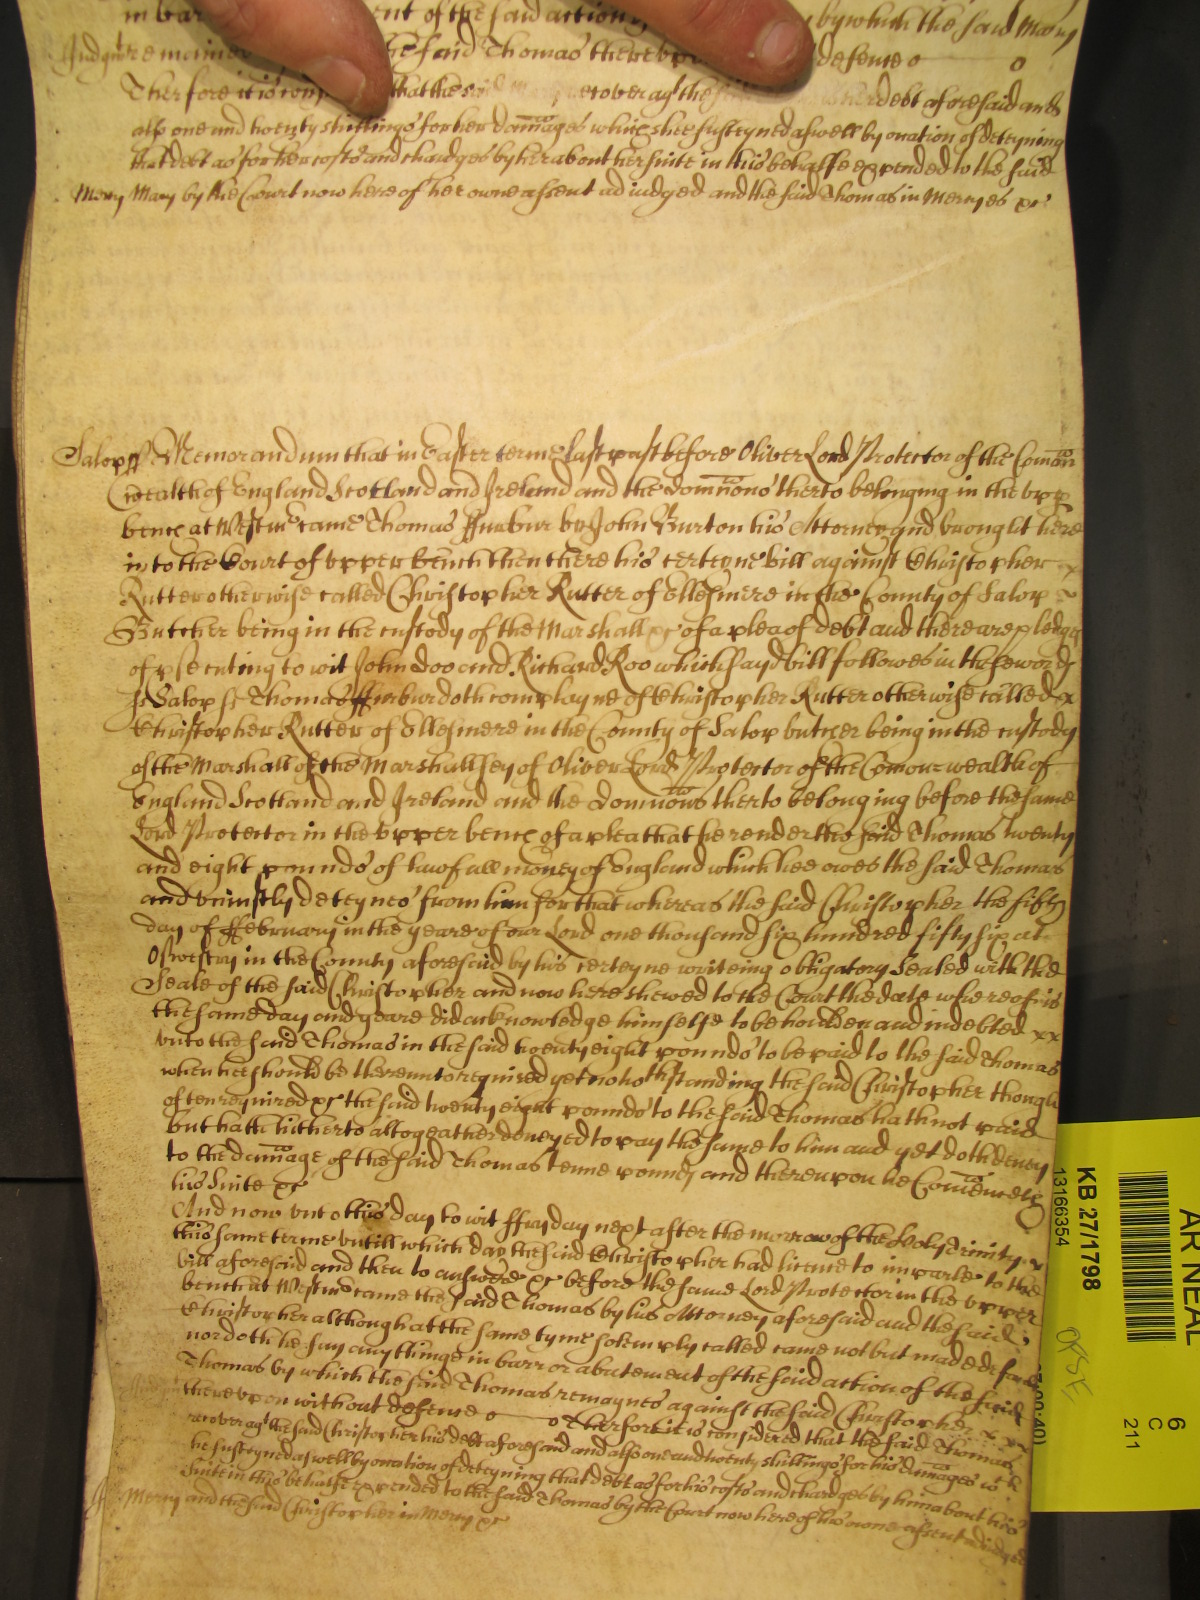 in bar ent of the said action by which the said Mary
Judgmt remaines the said Thomas thereupon defense o o
Therfore it is con that the said Mary recover agt the her debt aforesaid and
also one and twenty shillings for her damages which shee susteyned aswell by occation of deteyning
that debt as for her costs and chardges by her about her suite in this behalfe expended to the said
Mercy Mary by the Court now here of her owne assent adiudged and the said Thomas in Mercy &c
Salop ss Memorandum that in Easter terme last past before Oliver Lord Protector of the Comon
wealth of England Scotland and Ireland and the dominions therto belonging in the upp
bench at Westmr came Thomas by John Burton his Attorney and brought here
into the Court of upper bench then there his certeyne bill against Christopher x
Rutter otherwise called Christopher Rutter of Ellesmere in the County of Salop
Butcher being in the custody of the Marshall &c of a plea of debt and there are pledges
of psecuting to wit John Doo and Richard Roo which sayd bill followes in these words
ss Salop ss Thomas doth complayne of Christopher Rutter otherwise called x
Christopher Rutter of Ellesmere in the County of Salop butcher being in the custody
of the Marshall of the Marshallsey of Oliver Lord Protector of the Comon= wealth of
England Scotland and Ireland and the dominions therto belonging before the same
Lord Protector in the upper bench of a plea that he render the said Thomas twenty
and eight pounds of lawfull money of England which hee owes the said Thomas
and uniustly deteynes from him for that whereas the said Christopher the fifth
day of ffebruary in the yeare of our Lord one thousand six hundred fifty six at
Oswestry in the County aforesaid by his certeyne writeing obligatory Sealed with the
Seale of the said Christopher and now here shewed to the Court the date whereof is
the same day and yeare did acknowledge himselfe to be houlden and indebted x x
unto the said Thomas in the said twenty eight pounds to be paid to the said Thomas
when hee should be thereunto required yet notwithstanding the said Christopher though
often required &c the said twenty eight pounds to the said Thomas hath not paid
but hath hitherto altogeather denyed to pay the same to him and yet doth deney
to the damage of the said Thomas tenne pounds and thereupon he
his Suite &c
And now unto this day to wit ffryday next after the morrow of the Holy Trinity
this same terme untill which day the said Christopher had licence to imparle to the
bill aforesaid and then to answere &c before the same Lord Protector in the upper
bench at Westmr came the said Thomas by his Attorney aforesaid and the said
Christopher although at the same tyme solemply called came not but made default
nor doth he say any thinge in barr or abatement of the said action of the said
Thomas by which the said Thomas remaynes against the said Christopher x x x
thereupon without defense o o Therfore it is considered that the said Thomas
recover agt the said Christopher his debt aforesaid and also one and twenty shillings for his damages wch
he susteyned aswell by occation of deteyning that debt as for his costs and chardges by him about his
Suite in this behalfe expended to the said Thomas by the Court now here of his owne assent adiudged
Mercy and the said Christopher in Mercy &c
KB 27/1798
13166354
AR NEAL
6
C
211